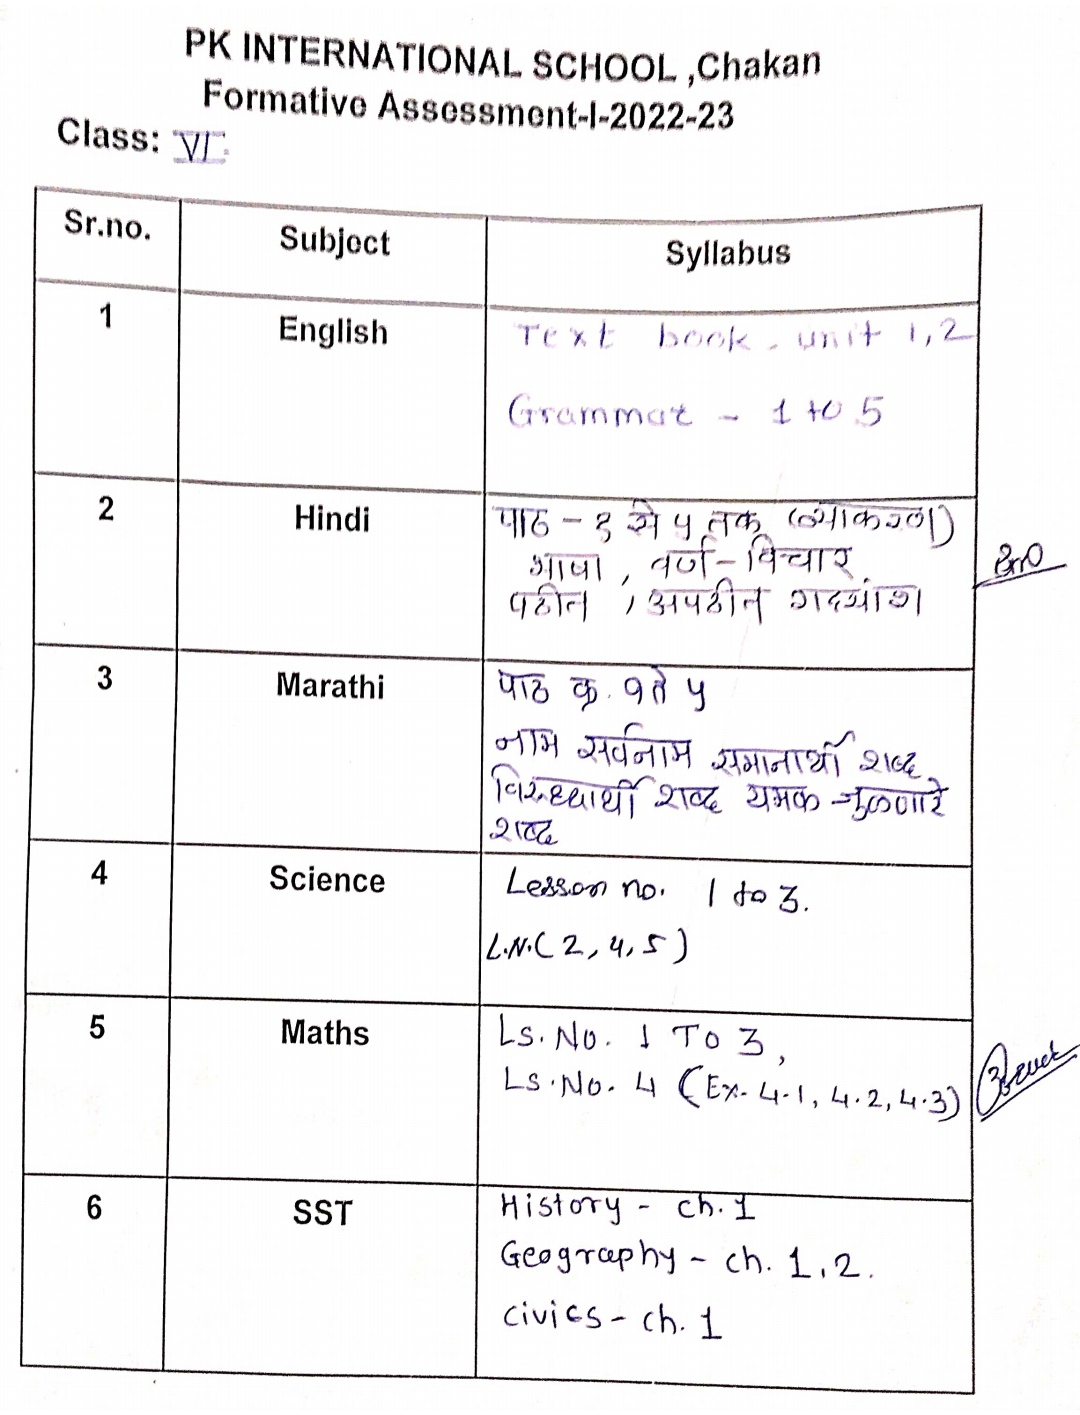 PK INTERNATIONAL SCHOOL ,Chakan
Formative Assessment-I-2022-23
Class: VI
Sr.no. Subject Syllabus
1 English Text book - unit 1,2
Grammar - 1 to 5
2 Hindi पाठ - १ से ५ तक (व्याकरण)
भाषा , वर्ण-विचार
पठीत , अपठीत गदयांश
3 Marathi पाठ क्र. १ ते ५
नाम सर्वनाम समानार्थी शब्द
विरुध्यार्थी शब्द यमक जुळणारे
शब्द
4 Science Lesson no. 1 to 3.
L.N.( 2, 4, 5 )
5 Maths Ls. No. 1 To 3,
Ls. No. 4 (Ex. 4.1, 4.2, 4.3)
6 SST History - ch. 1
Geography - ch. 1,2.
civics - ch. 1